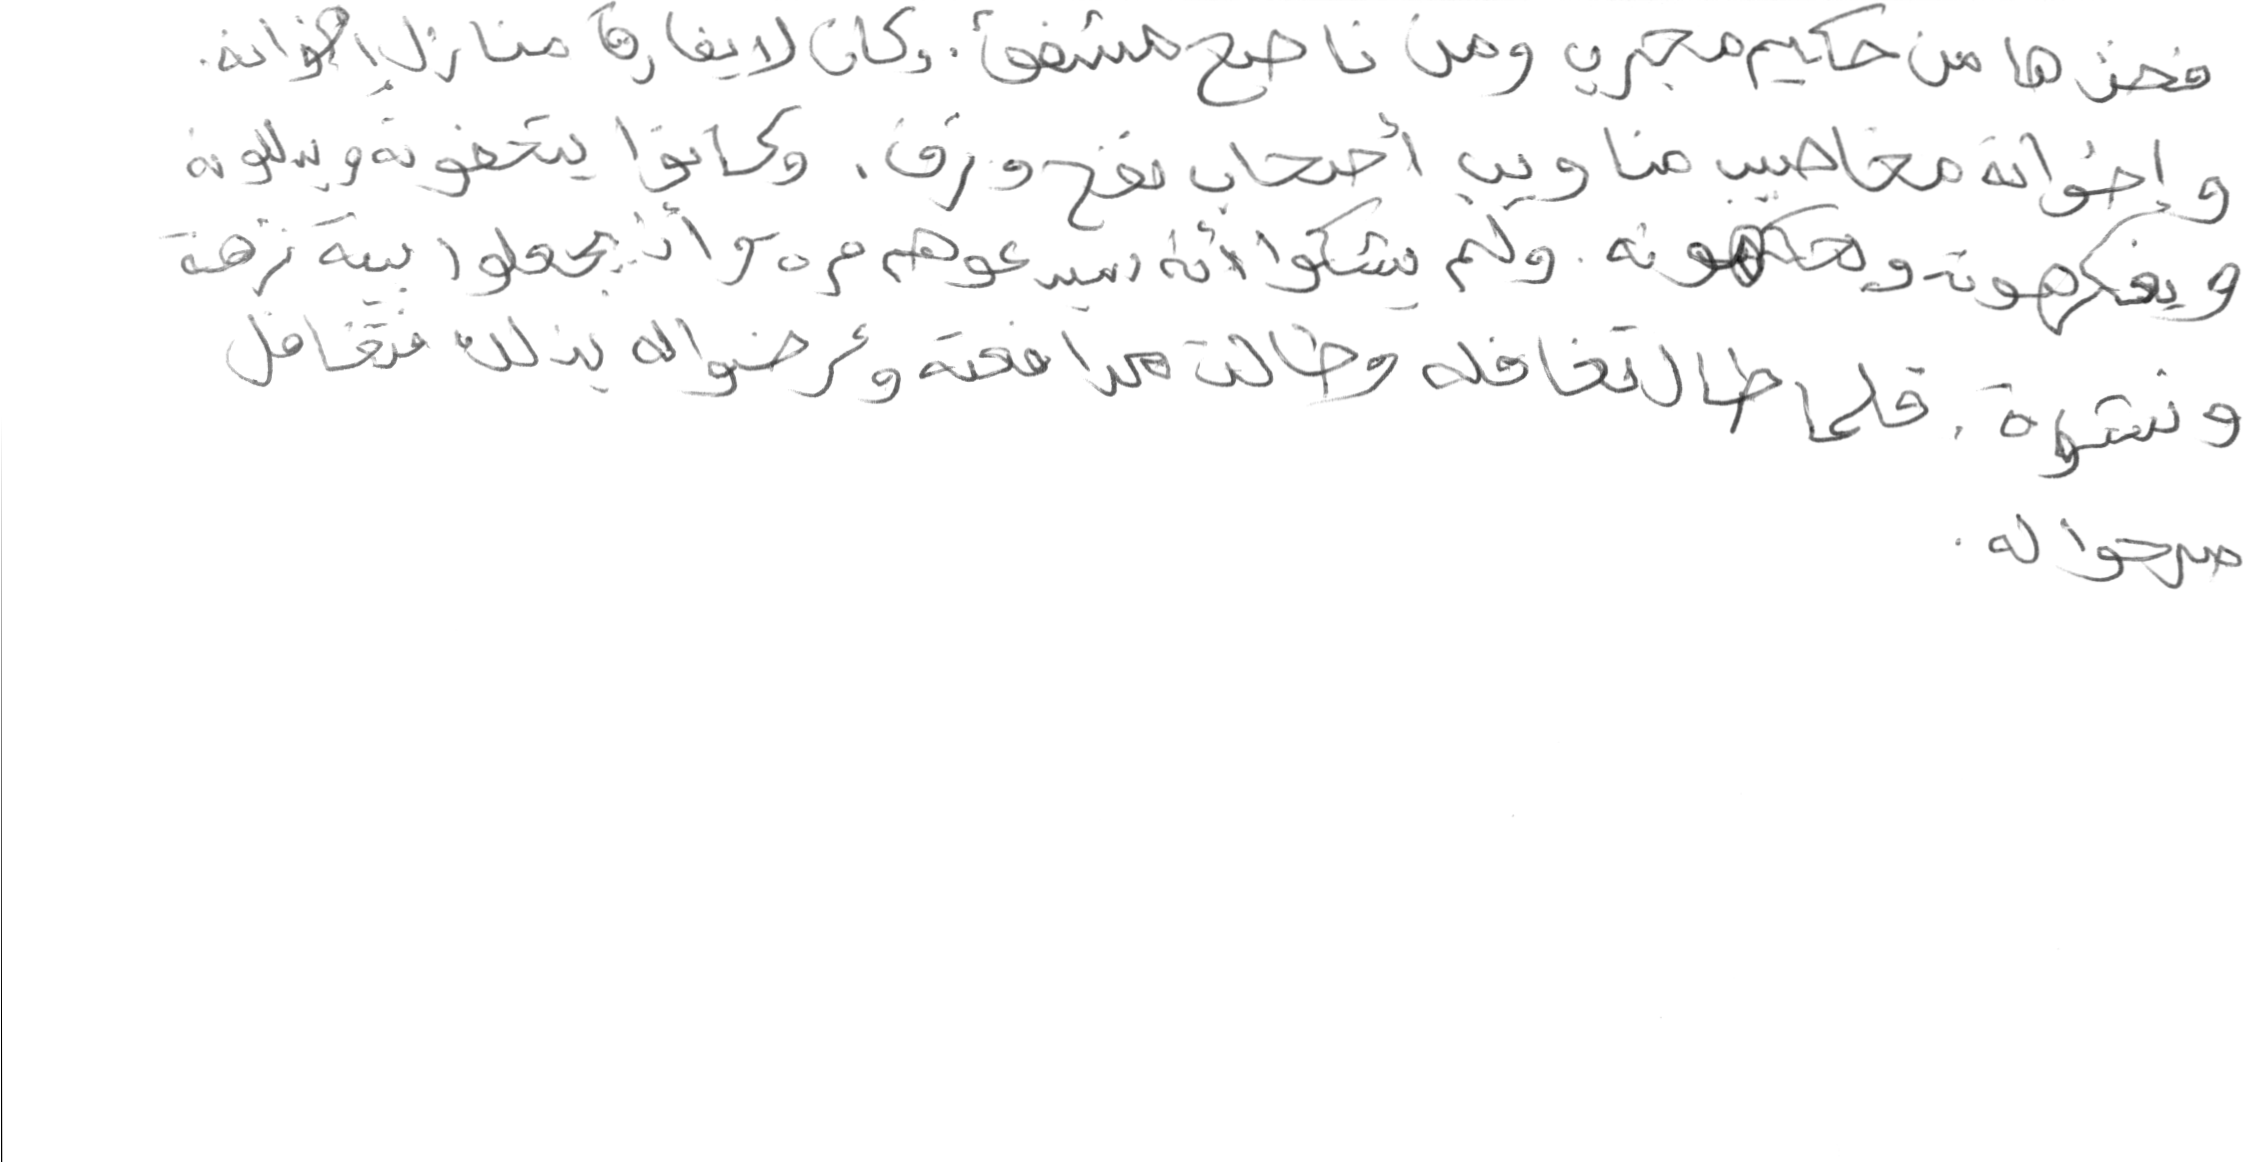 فخذها من حكيم مجرب ومن ناصح مشفق. وكان لا يفارق منازل إخوانه.
وإخوانه مخاصيب مناويب أصحاب نفح وترف. وكانوا يتحفونه ويدللونه
ويفكهونه ويحكمونه. ولم يشكوا أنه سيدعوهم مرة وأن يجعلوا بيته نزهة
ونشوة. فلما طال تغافله وطالت مدافعته وعرضوا له بذلك فتغافل
صرحوا له.